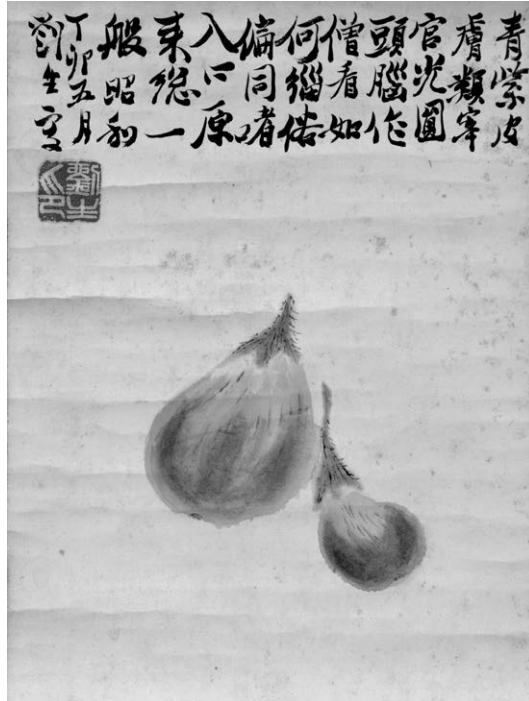 青紫皮
膚類宰
官光圓
頭腦作
僧看如
何緇俗
偏同嗜
入口原
來總一
般昭和
丁卯五月
劉生寫